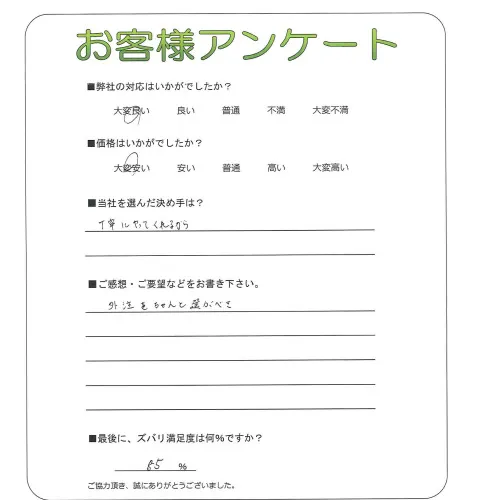 お客様アンケート
■弊社の対応はいかがでしたか？
大変良い 良い 普通 不満 大変不満
■価格はいかがでしたか？
大変安い 安い 普通 高い 大変高い
■当社を選んだ決め手は？
丁寧にやってくれるから
■ご感想・ご要望などをお書き下さい。
外注をちゃんと選ぶべき
■最後に、ズバリ満足度は何%ですか？
85 %
ご協力頂き、誠にありがとうございました。